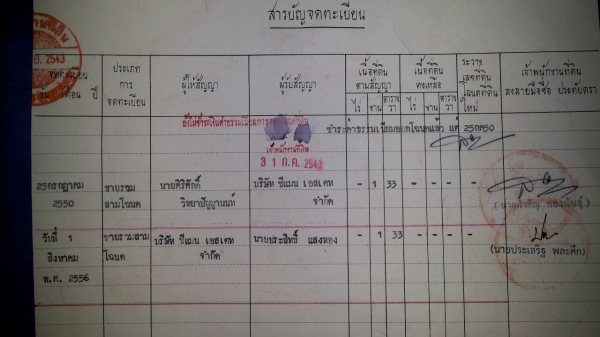 สารบัญจดทะเบียน
จดทะเบียน
วัน เดือน ปี
ประเภท
การ
จดทะเบียน
ผู้ให้สัญญา
ผู้รับสัญญา
เนื้อที่ดิน
ตามสัญญา
ไร่ งาน ตารางวา
เนื้อที่ดิน
คงเหลือ
ไร่ งาน ตารางวา
ระวาง
เลขที่ดิน
โฉนดที่ดิน
ใหม่
เจ้าพนักงานที่ดิน
ลงลายมือชื่อ ประทับตรา
2543
ชำระค่าธรรมเนียมออกโฉนดแล้ว
เจ้าพนักงานที่ดิน
31 ก.ค. 2543
25กรกฎาคม
2550
ขายรวม
สามโฉนด
นายศิริศักดิ์
วิทยาปัญญานนท์
บริษัท ซีแมน เอสเตท
จำกัด
- 1 33 - - - -
วันที่ 1
สิงหาคม
พ.ศ. 2556
ขายรวมสาม
โฉนด
บริษัท ซีแมน เอสเตท
จำกัด
นายประสิทธิ์ แสงทอง
- 1 33 - - - -
(นายประเสริฐ พละศึก)